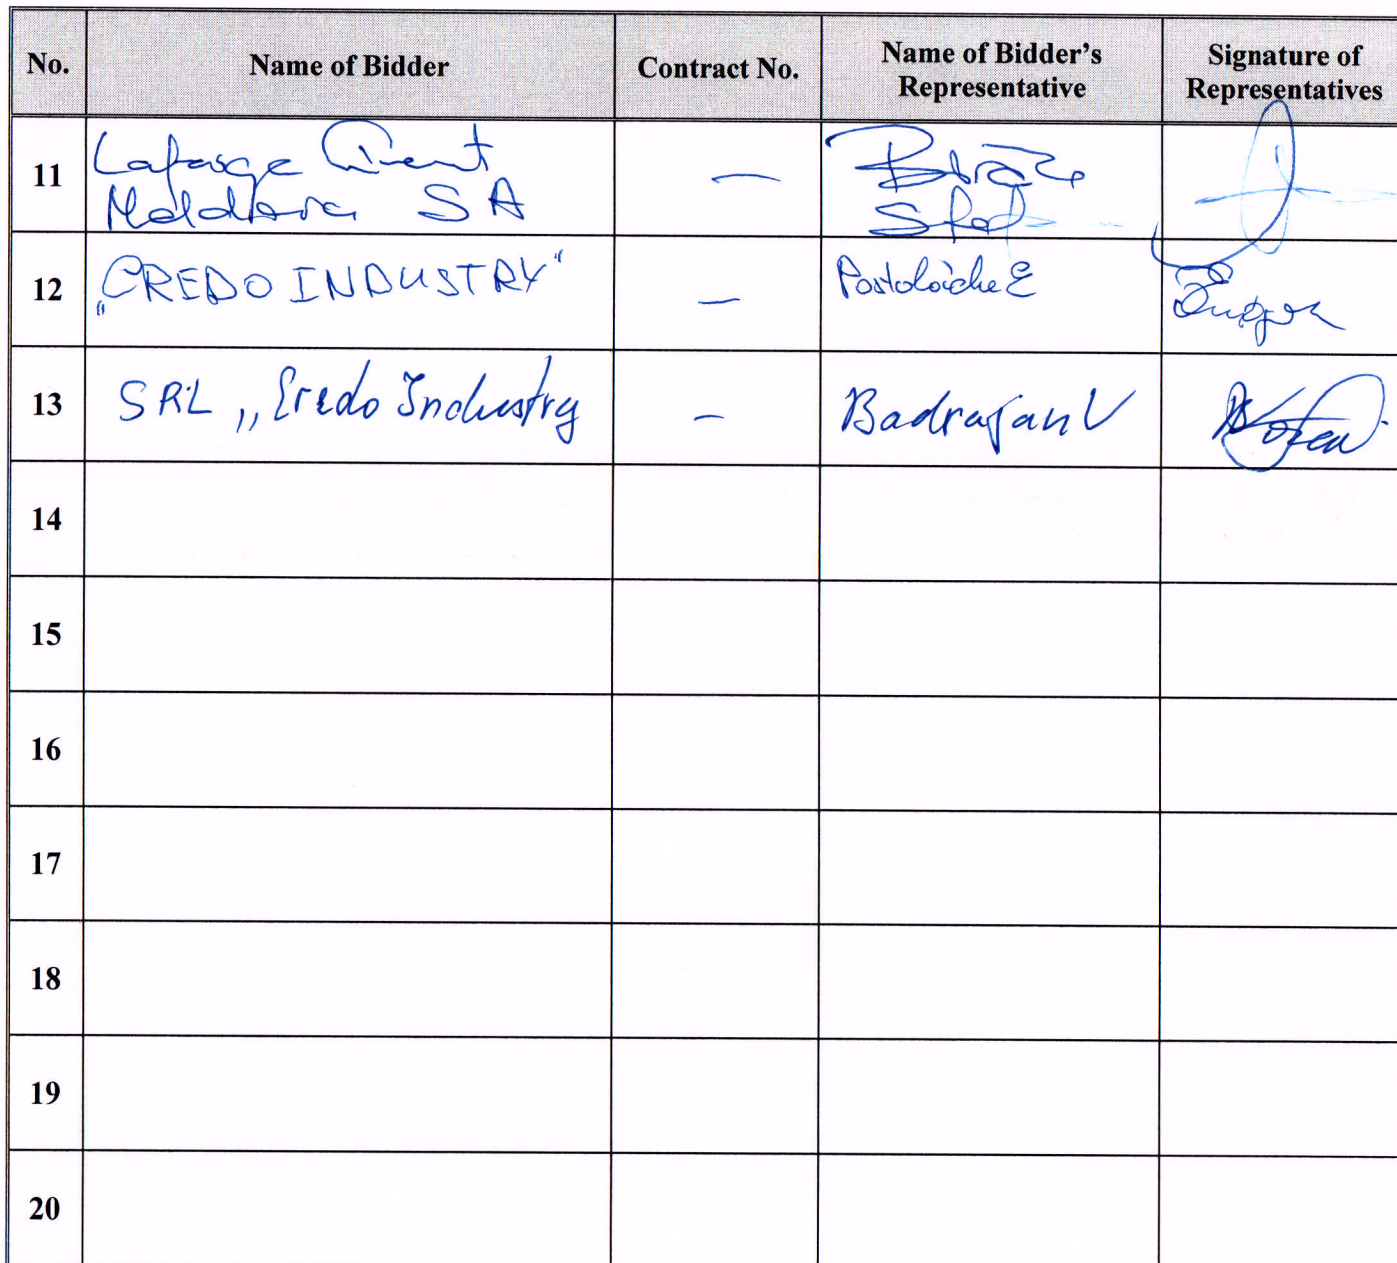 No. Name of Bidder Contract No. Name of Bidder's Representative Signature of Representatives
11 Lafarge Ciment —
Moldova SA
12 „CREDO INDUSTRY" — Postolache E
13 SRL „Credo Industry — Badrajan V
14
15
16
17
18
19
20